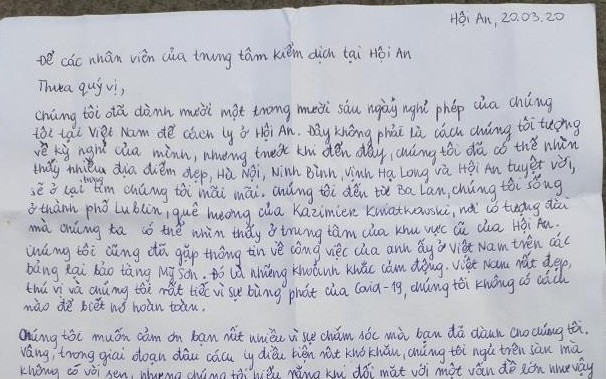 Hội An, 20.03.20
Để các nhân viên của trung tâm kiểm dịch tại Hội An
Thưa quý vị,
chúng tôi đã dành mười một trong mười sáu ngày nghỉ phép của chúng
tôi tại Việt Nam để cách ly ở Hội An. Đây không phải là cách chúng tôi tượng
về kỳ nghỉ của mình, nhưng trước khi đến đây, chúng tôi đã có thể nhìn
thấy nhiều địa điểm đẹp, Hà Nội, Ninh Bình, Vịnh Hạ Long và Hội An tuyệt vời,
sẽ ở lại trong tim chúng tôi mãi mãi. Chúng tôi đến từ Ba Lan, chúng tôi sống
ở thành phố Lublin, quê hương của Kazimierz Kwiatkowski, nơi có tượng đài
mà chúng ta có thể nhìn thấy ở trung tâm của khu vực cũ của Hội An.
Chúng tôi cũng đã gặp thông tin về công việc của anh ấy ở Việt Nam trên các
bảng tại bảo tàng Mỹ Sơn. Đó là những khoảnh khắc cảm động. Việt Nam rất đẹp,
thú vị và chúng tôi rất tiếc vì sự bùng phát của Covid-19, chúng tôi không có cách
nào để biết nó hoàn toàn.
Chúng tôi muốn cảm ơn bạn rất nhiều vì sự chăm sóc mà bạn đã dành cho chúng tôi.
Vâng, trong giai đoạn đầu cách ly điều kiện rất khó khăn, chúng tôi ngủ trên sàn mà
không có vòi sen, nhưng chúng tôi hiểu rằng khi đối mặt với một vấn đề lớn như vậy